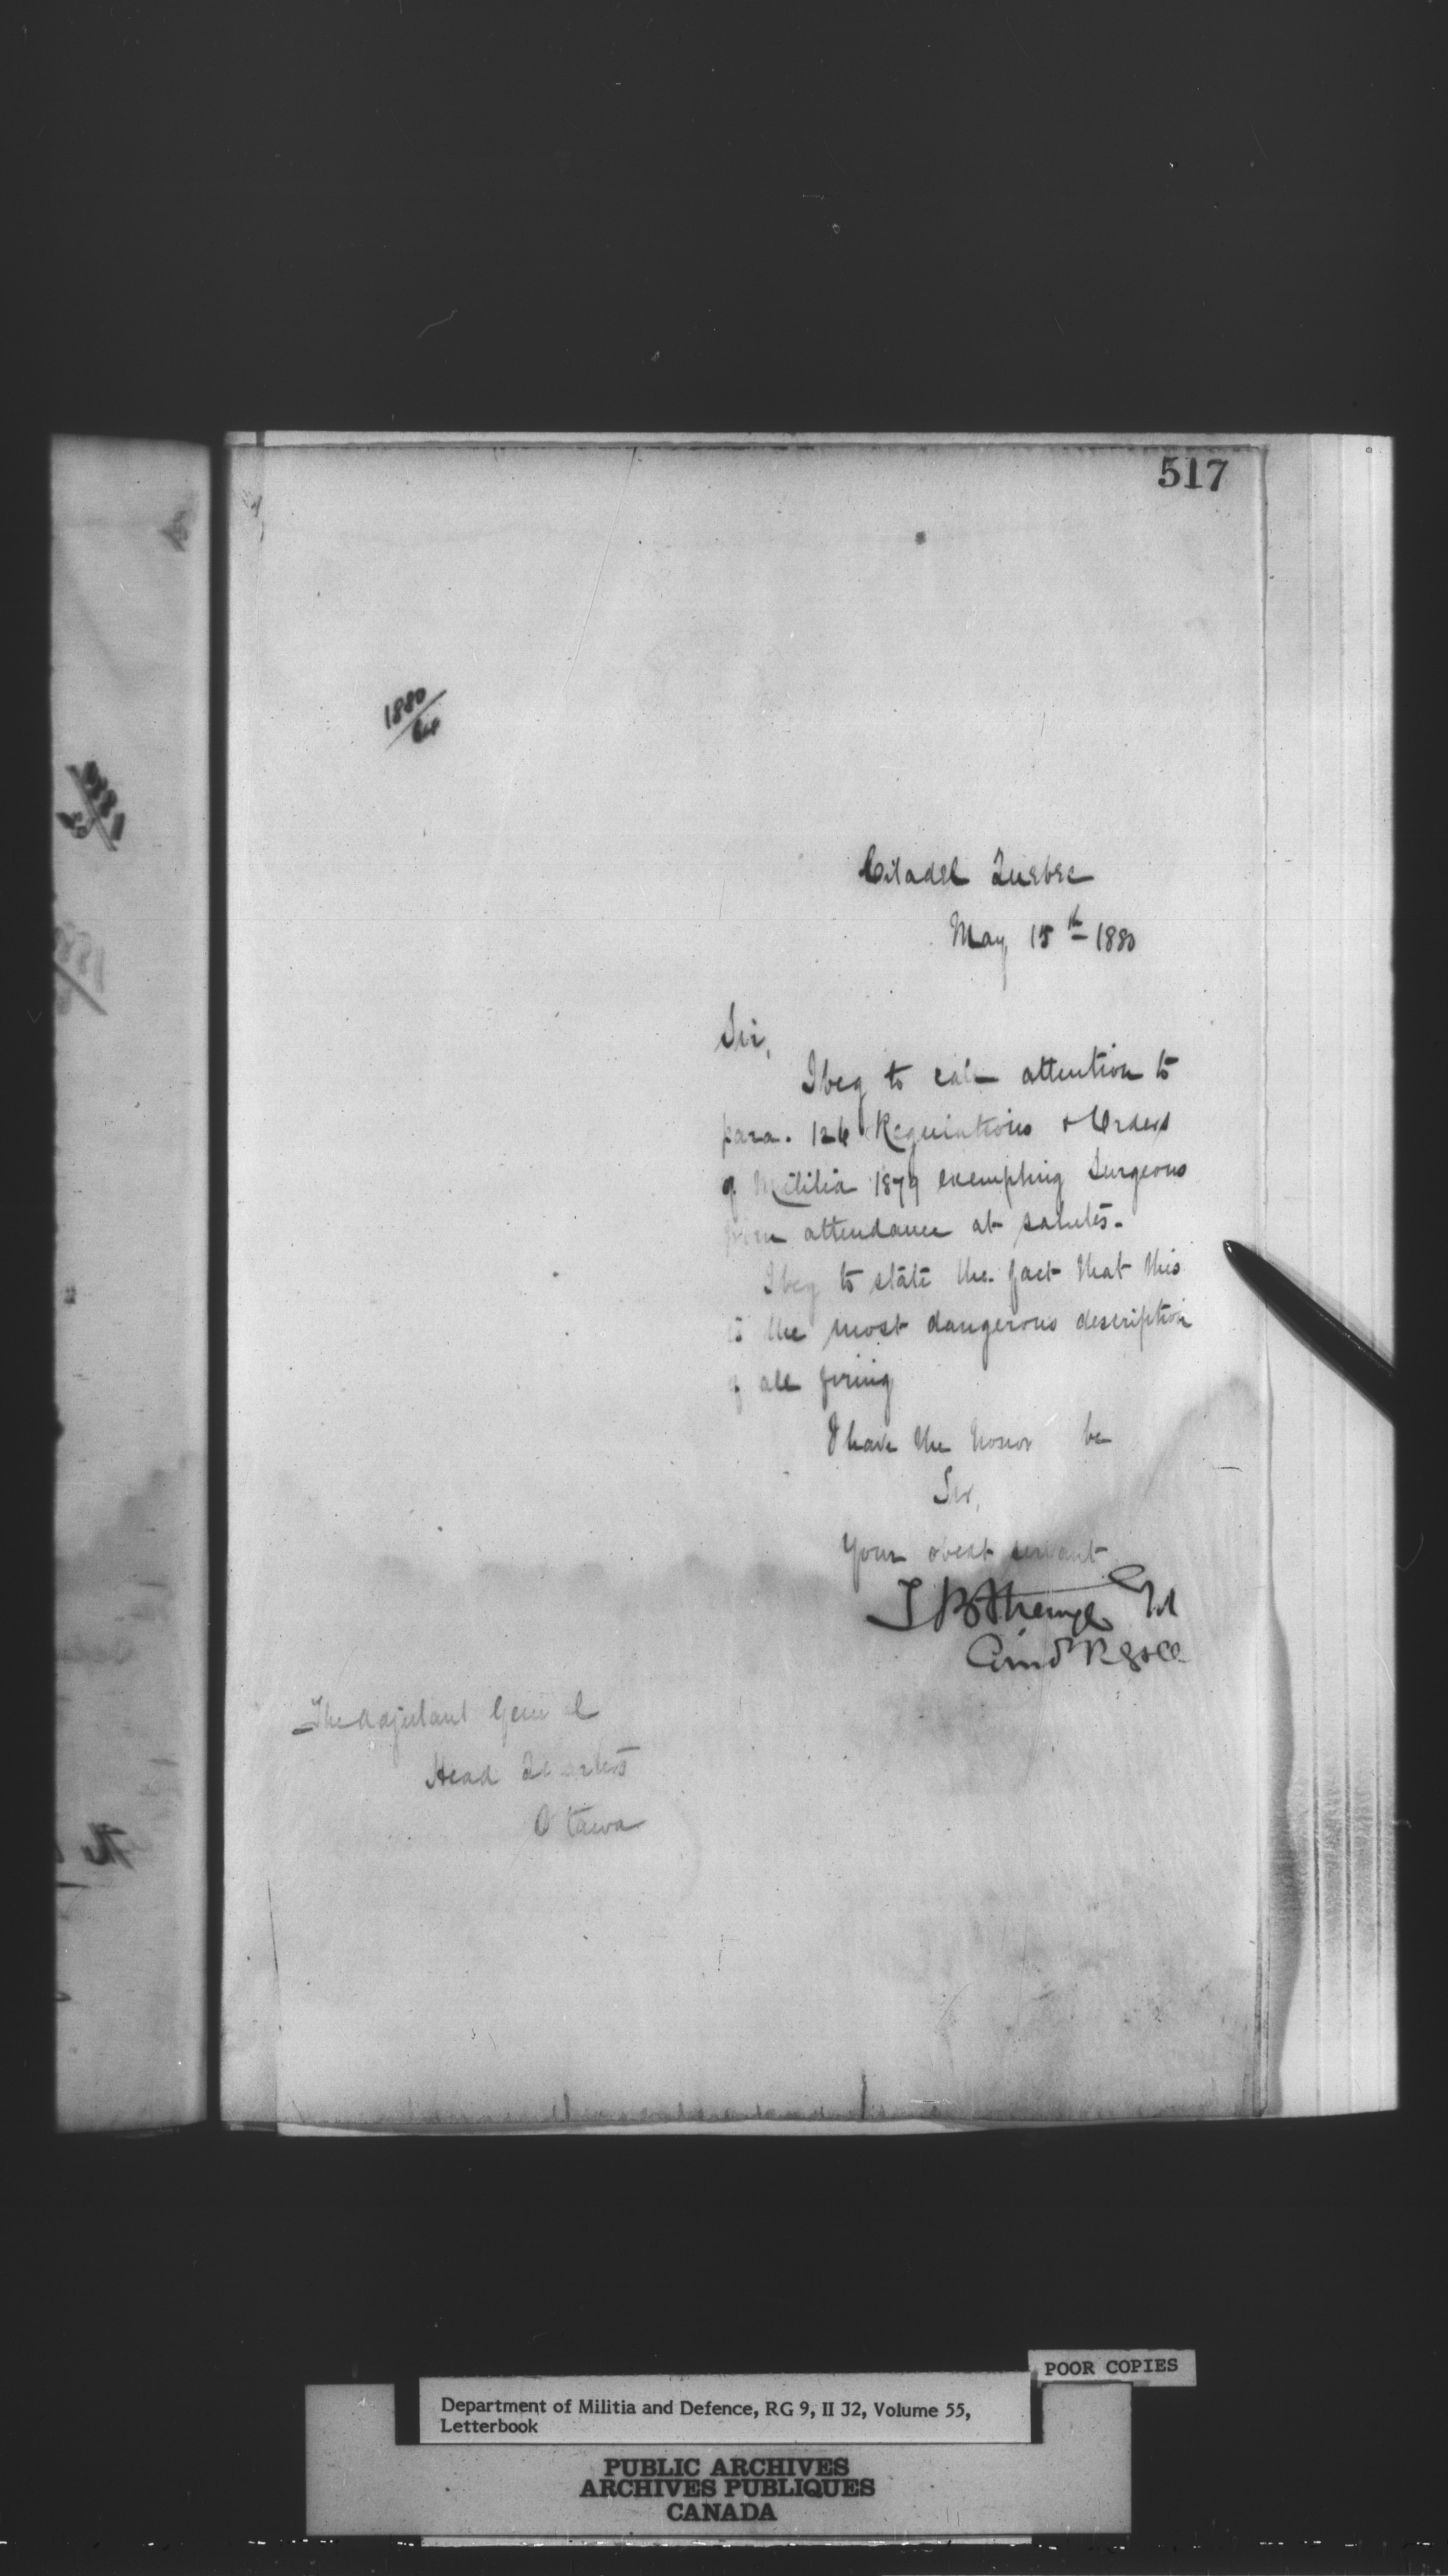 517
1880/64
Citadel Quebec
May 15th 1880
Sir,
I beg to call attention to
para. 126 Regulations & Orders
of Militia 1879 exempting Surgeons
from attendance at salutes.
I beg to state the fact that this
is the most dangerous description
of all firing
I have the honor be
Sir,
Your obedt servant
T B Strange
The Adjutant General
Head Quarters
Ottawa
POOR COPIES
Department of Militia and Defence, RG 9, II J2, Volume 55,
Letterbook
PUBLIC ARCHIVES
ARCHIVES PUBLIQUES
CANADA